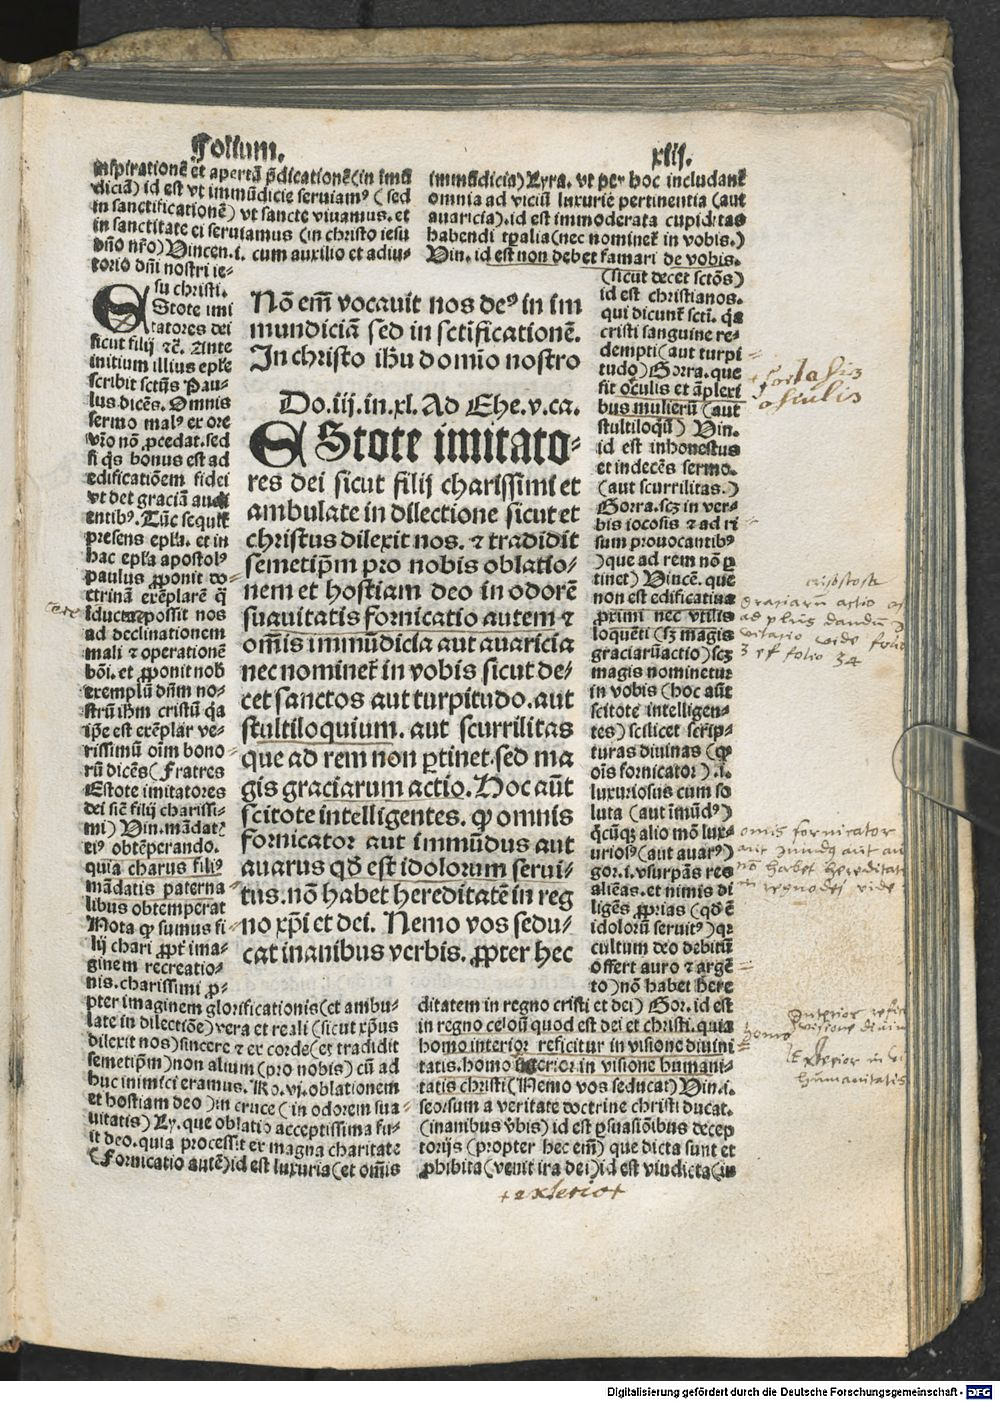 Folium.
xlij.
inspirationē et apertā p̄dicationē (in imū
diciā) id est vt immūdicie seruiamꝰ (sed
in sanctificationē) vt sancte viuamus. et
in sanctitate ei seruiamus (in christo iesu
dn̄o nr̄o) Vincen. i. cum auxilio et adiu-
torio dn̄i nostri ie-
su christi.
EStote imi
tatores dei
sicut filij ⁊c̄. Ante
initium illius ep̄le
scribit sctūs Pau-
lus dicēs. Omnis
sermo malꝰ ex ore
vr̄o nō ꝓcedat. sed
si q̄s bonus est ad
edificatiōem fidei
vt det graciā audi
entibꝰ. Tūc sequit̄
presens ep̄la. et in
hac ep̄la apostolꝰ
paulus ꝓponit do-
ctrinā exēplarē q̄
iducere possit nos
ad declinationem
mali ⁊ operationē
bōi. et ꝓponit nob̄
exemplū dn̄m no-
strū ih̄m cristū q̄a
ip̄e est exēplar ve-
rissimū oīm bono
rū dicēs (Fratres
Estote imitatores
dei sic̄ filij charissi-
mi) Vin. mādatꝭ
eiꝰ obtēperando.
quia charus filiꝰ
mādatis paterna-
libus obtemperat
Nota ꝙ sumus fi-
lij chari ꝓpt̄ ima-
ginem recreatio-
nis. charissimi ꝓ-
pter imaginem glorificationis (et ambu-
late in dilectiōe) vera et reali (sicut xp̄us
dilexit nos) sincere ⁊ ex corde (et tradidit
semetip̄m) non alium (pro nobis) cū ad
huc inimici eramus. Ro. vj. oblationem
et hostiam deo) in cruce (in odorem sua-
uitatis) Ly. que oblatio acceptissima fu-
it deo. quia processit ex magna charitate
(Fornicatio autē) id est luxuria (et om̄is
Nō em̄ vocauit nos deꝰ in im
mundiciā sed in sctificationē.
In christo ih̄u domīo nostro
Do. iij. in. xl. Ad Ephe. v. ca.
EStote imitato-
res dei sicut filij charissimi et
ambulate in dilectione sicut et
christus dilexit nos. ⁊ tradidit
semetip̄m pro nobis oblatio-
nem et hostiam deo in odorē
suauitatis fornicatio autem ⁊
om̄is immūdicia aut auaricia
nec nominet̄ in vobis sicut de-
cet sanctos aut turpitudo. aut
stultiloquium. aut scurrilitas
que ad rem non ꝑtinet. sed ma
gis graciarum actio. Hoc aūt
scitote intelligentes. ꝙ omnis
fornicator aut immūdus aut
auarus qd̄ est idolorum serui-
tus. nō habet hereditatē in reg
no xp̄i et dei. Nemo vos sedu-
cat inanibus verbis. ꝓpter hec
immūdicia) Lyra. vt per hoc includant̄
omnia ad viciū luxurie pertinentia (aut
auaricia). id est immoderata cupiditas
habendi tp̄alia (nec nominet̄ in vobis.)
Vin. id est non debet famari de vobis.
(sicut decet sctōs)
id est christianos.
qui dicunt̄ scti. q̄a
cristi sanguine re-
dempti (aut turpi-
tudo) Gorra. que
fit oculis et āplexi
bus mulierū (aut
stultiloqū) Vin.
id est inhonestus
et indecēs sermo.
(aut scurrilitas.)
Gorra. scꝫ in ver-
bis iocosis ⁊ ad ri
sum prouocantibꝰ
) que ad rem nō ꝑ
tinet) Vincē. que
non est edificatiua
proximi nec vtilis
loquēti (sꝫ magis
graciarū actio) scꝫ
magis nominetur
in vobis (hoc aūt
scitote intelligen-
tes) scilicet scrip-
turas diuinas (ꝙ
oīs fornicator) .i.
luxuriosus cum so
luta (aut īmūdꝰ)
q̄cūqꝫ alio mō lux-
uriosꝰ (aut auarꝰ)
gor. i. vsurpās res
aliēas. et nimis di
ligēs ꝓprias (qd̄ ē
idolorū seruitꝰ) qꝛ
cultum deo debitū
offert auro ⁊ argē
to) nō habet here
ditatem in regno cristi et dei) Gor. id est
in regno celoū quod est dei et christi. quia
homo interior reficitur in visione diuini
tatis. homo in visione humani-
tatis christi (Nemo vos seducat) Vin. i.
seorsum a veritate doctrine christi ducat.
(inanibus v̄bis) id est ꝑsuasiōibus decep
torijs (propter hec em̄) que dicta sunt et
ꝓhibita (venit ira dei) id est vindicta (in
osculis
graciarū actio
ad plus dandū
vide folio
3 et folio 34
omīs fornicator
nō habet hereditat
regno dei vide
Interior refici
visione diuin
homo
Exterior in vi
humanitatis
+ exterior
Digitalisierung gefördert durch die Deutsche Forschungsgemeinschaft - DFG